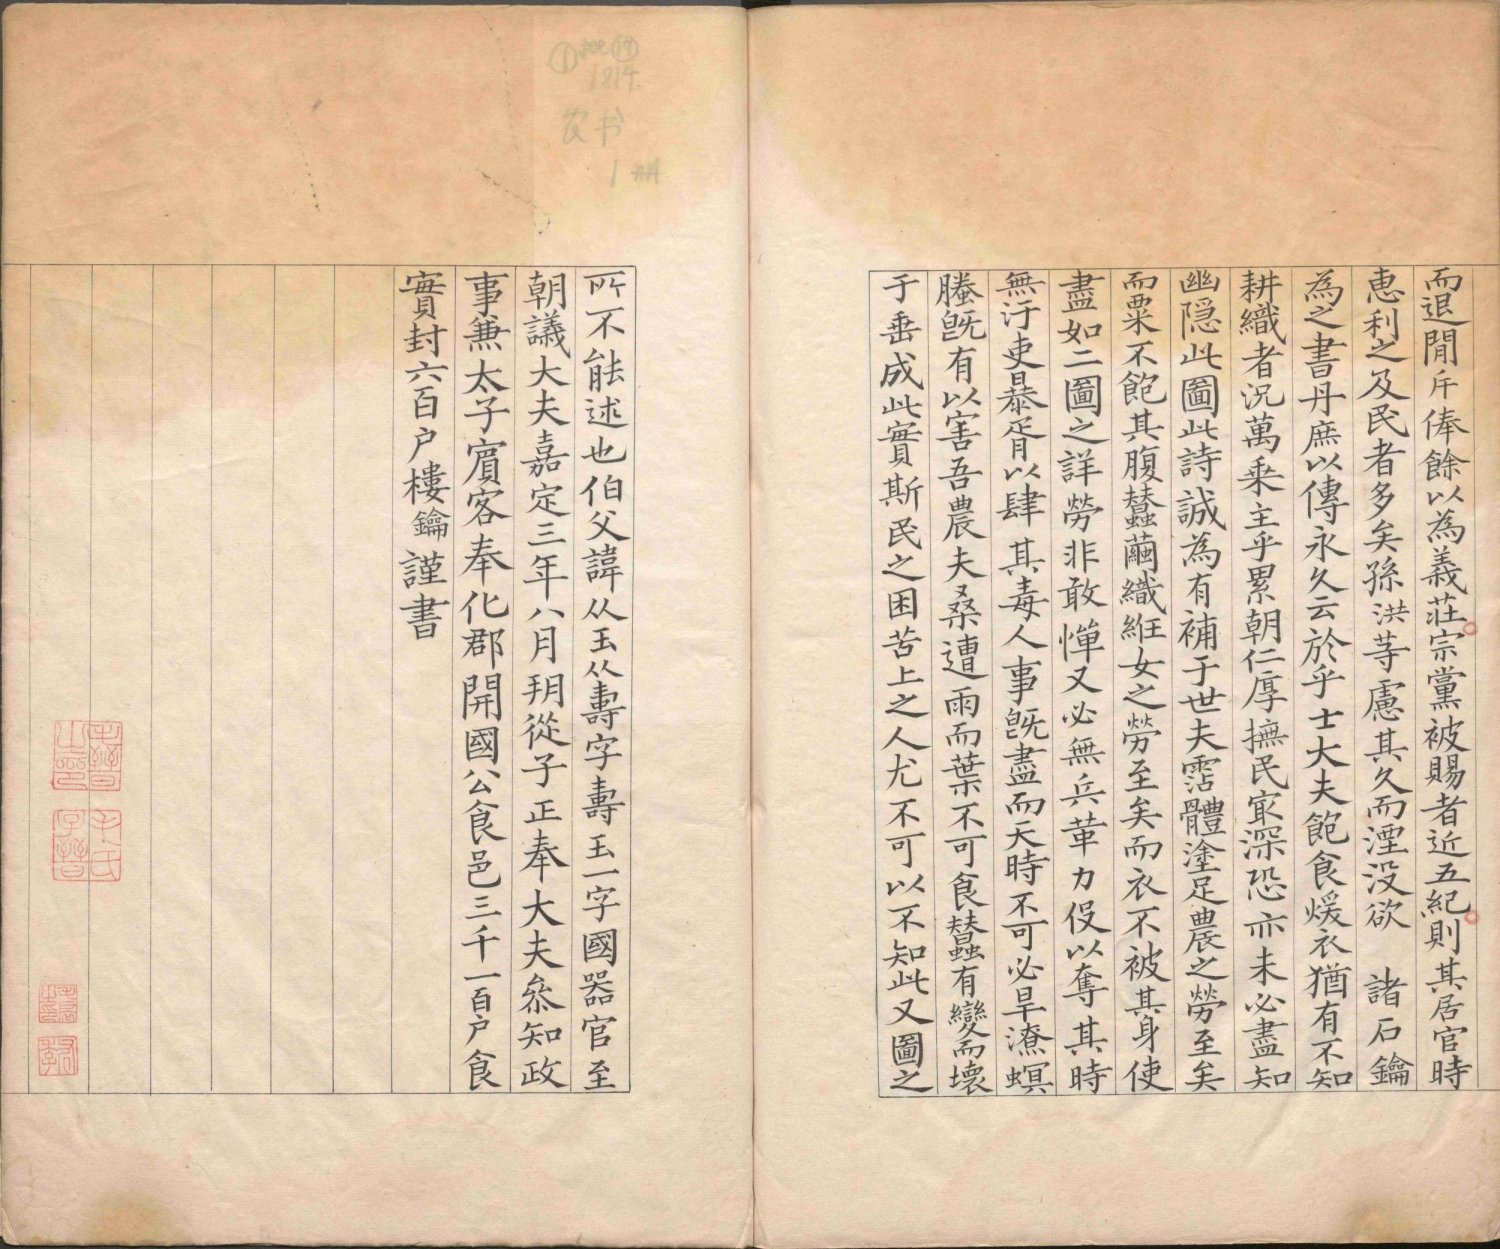 而退閒斥俸餘以為義莊宗黨被賜者近五紀則其居官時
惠利之及民者多矣孫洪等慮其久而湮没欲 諸石鑰
為之書丹庶以傳永久云於乎士大夫飽食煖衣猶有不知
耕織者況萬乘主乎累朝仁厚撫民寂深恐亦未必盡知
幽隠此圖此詩誠為有補于世夫霑體塗足農之勞至矣
而粟不飽其腹蠶繭織絍女之勞至矣而衣不被其身使
盡如二圖之詳勞非敢憚又必無兵革力役以奪其時
無汙吏暴胥以肆其毒人事旣盡而天時不可必旱潦螟
螣旣有以害吾農夫桑遭雨而葉不可食蠶有變而壞
于垂成此實斯民之困苦上之人尤不可以不知此又圖之
所不能述也伯父諱从玉从壽字壽玉一字國器官至
朝議大夫嘉定三年八月朔從子正奉大夫叅知政
事兼太子賔客奉化郡開國公食邑三千一百户食
實封六百户樓鑰謹書
农书